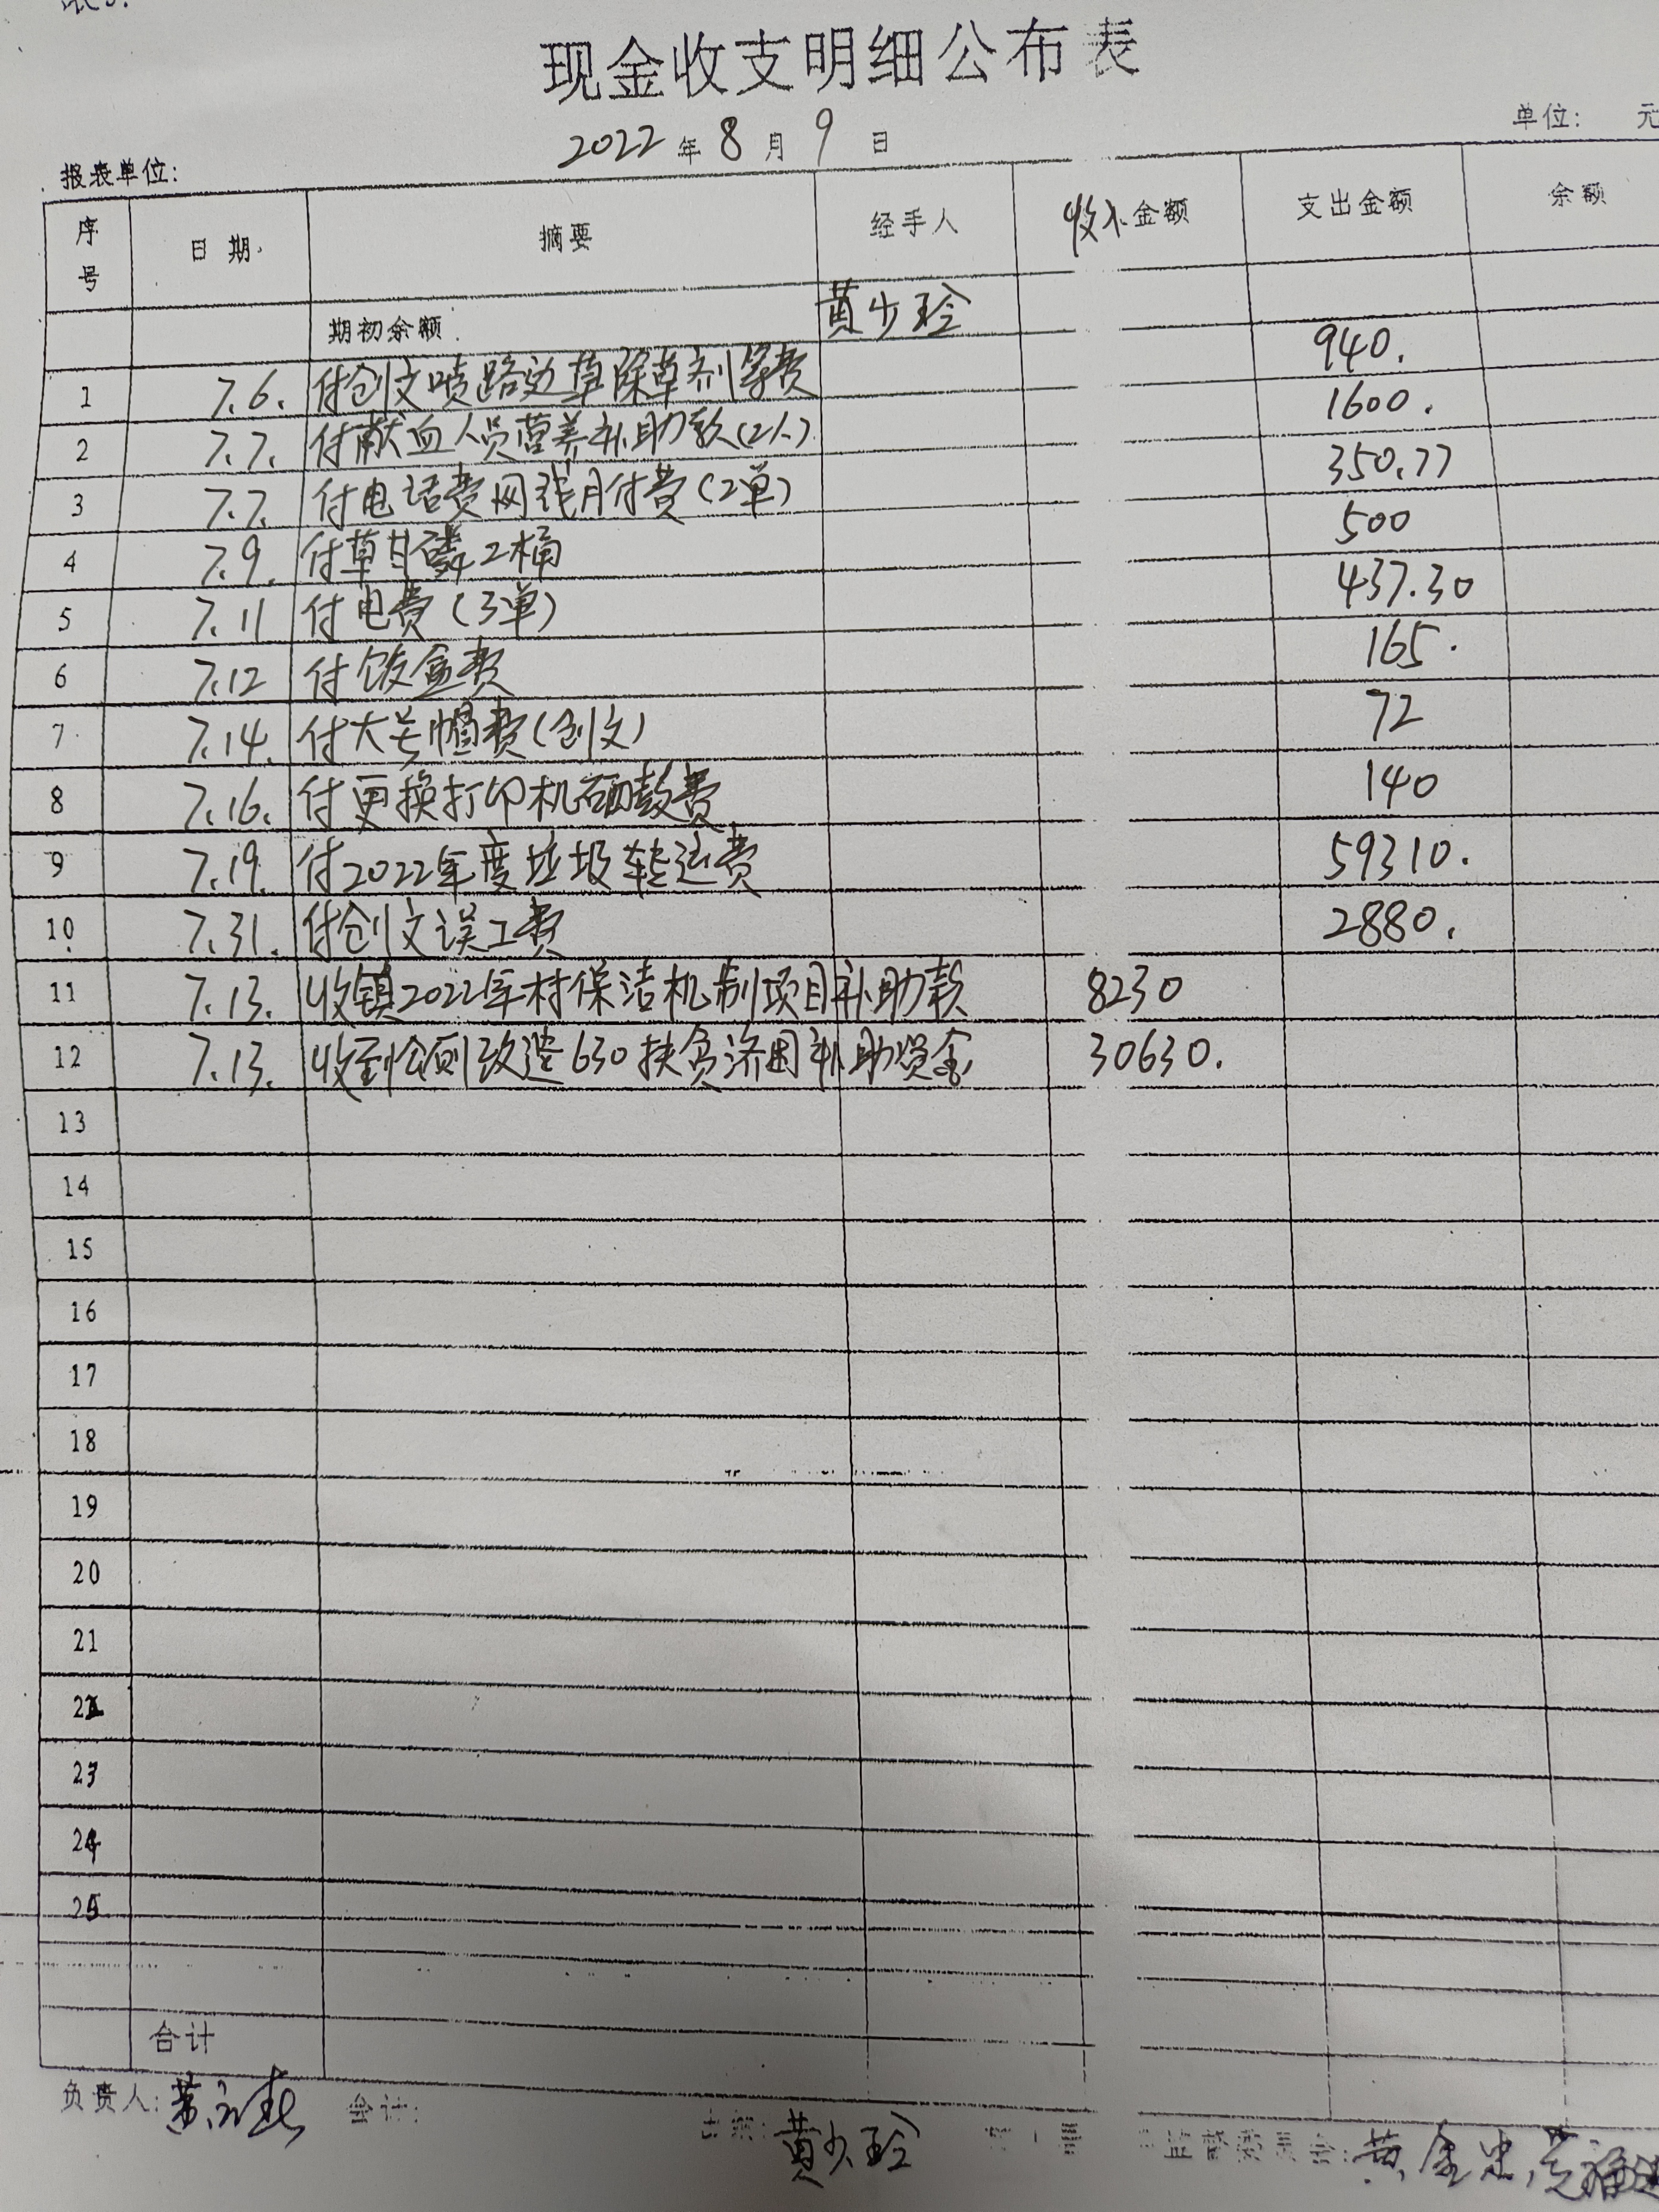 现金收支明细公布表
2022年8月9日
单位: 元
报表单位:
序号 日期 摘要 经手人 收入金额 支出金额 余额
期初余额 黄少玲
1 7.6. 付创文喷路边草除草剂等费 940.
2 7.7. 付献血人员营养补助款(2人) 1600.
3 7.7. 付电话费网线月付费(2单) 350.77
4 7.9. 付草甘磷2桶 500
5 7.11 付电费(3单) 437.30
6 7.12 付饭盒费 165.
7 7.14. 付大号帽费(创文) 72
8 7.16. 付更换打印机硒鼓费 140
9 7.19. 付2022年度垃圾转运费 59310.
10 7.31. 付创文误工费 2880.
11 7.13. 收镇2022年村保洁机制项目补助款 8230
12 7.13. 收到公厕改造630扶贫济困补助资金 30630.
13
14
15
16
17
18
19
20
21
22
23
24
25
合计
负责人: 会计: 出纳: 黄少玲 监督委员会: 黄金忠